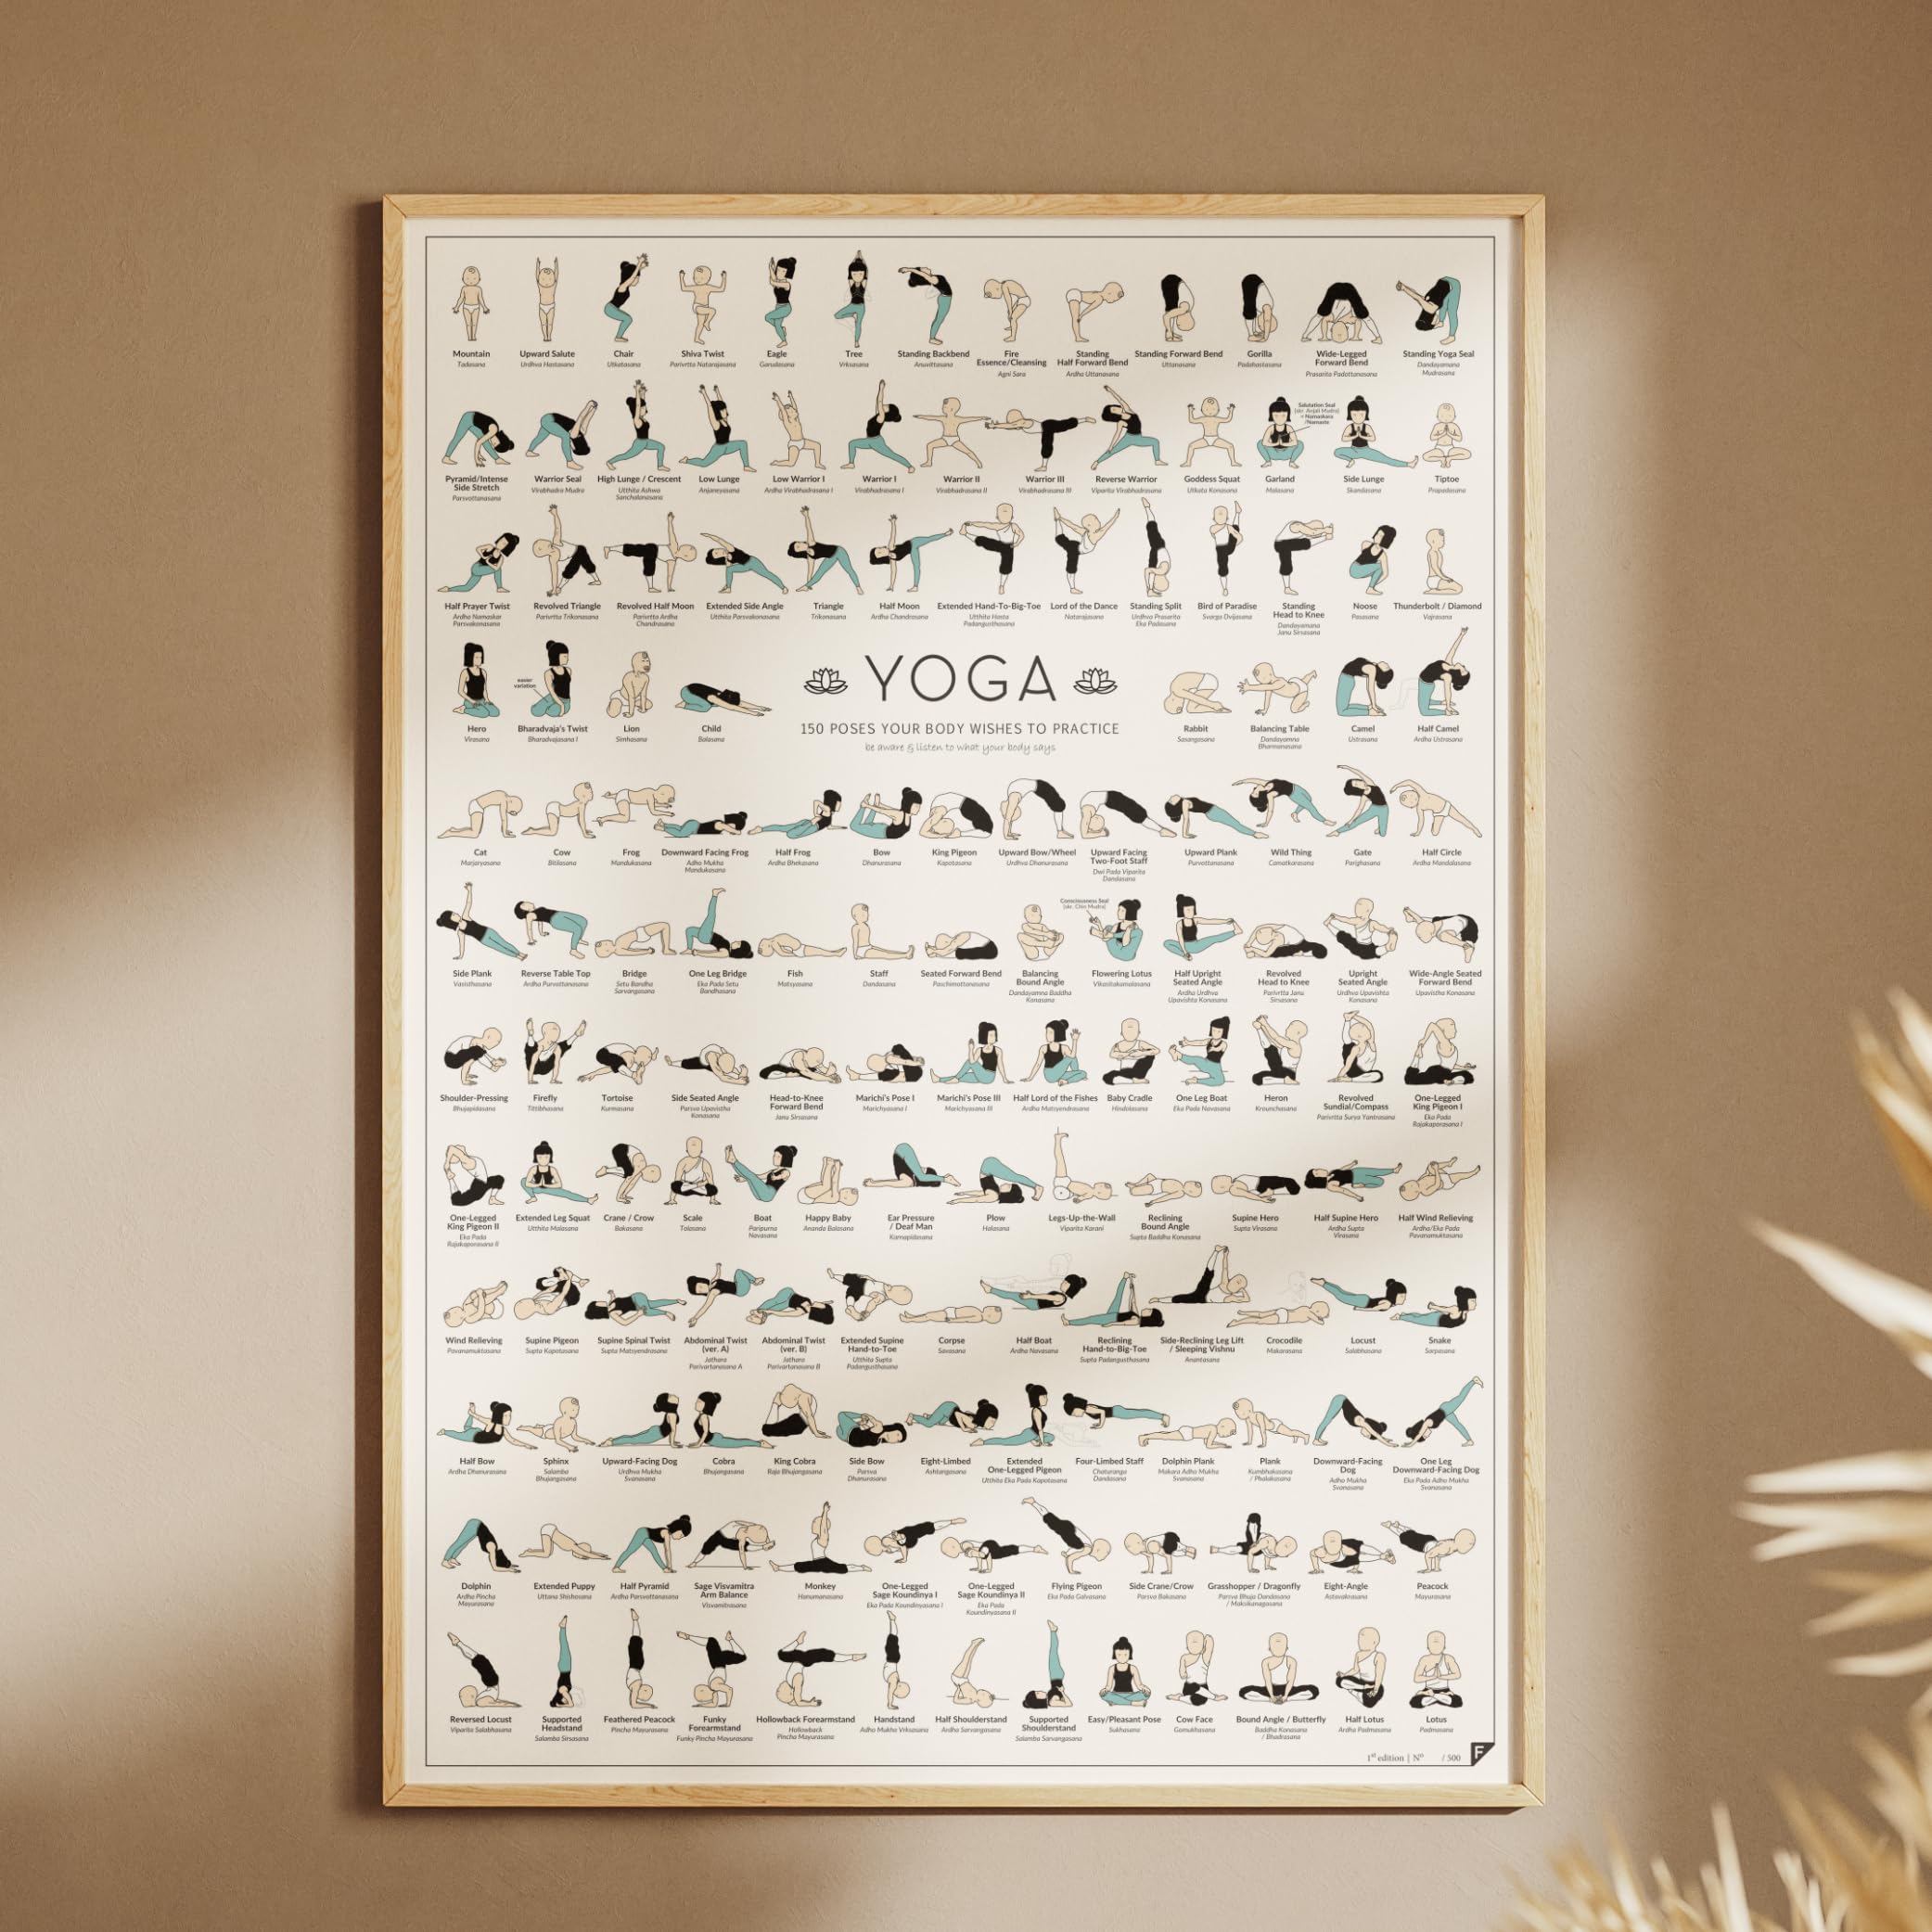 Mountain
Tadasana
Upward Salute
Urdhva Hastasana
Chair
Utkatasana
Shiva Twist
Parivrtta Natarajasana
Eagle
Garudasana
Tree
Vrksasana
Standing Backbend
Anuvittasana
Fire
Essence/Cleansing
Agni Sara
Standing
Half Forward Bend
Ardha Uttanasana
Standing Forward Bend
Uttanasana
Gorilla
Padahastasana
Wide-Legged
Forward Bend
Prasarita Padottanasana
Standing Yoga Seal
Dandayamana
Mudrasana
Pyramid/Intense
Side Stretch
Parsvottanasana
Warrior Seal
Virabhadra Mudra
High Lunge / Crescent
Utthita Ashwa
Sanchalanasana
Low Lunge
Anjaneyasana
Low Warrior I
Ardha Virabhadrasana I
Warrior I
Virabhadrasana I
Warrior II
Virabhadrasana II
Warrior III
Virabhadrasana III
Reverse Warrior
Viparita Virabhadrasana
Goddess Squat
Utkata Konasana
Salutation Seal
(skr. Anjali Mudra)
= Namaskara
/Namaste
Garland
Malasana
Side Lunge
Skandasana
Tiptoe
Prapadasana
Half Prayer Twist
Ardha Namaskar
Parsvakonasana
Revolved Triangle
Parivrtta Trikonasana
Revolved Half Moon
Parivrtta Ardha
Chandrasana
Extended Side Angle
Utthita Parsvakonasana
Triangle
Trikonasana
Half Moon
Ardha Chandrasana
Extended Hand-To-Big-Toe
Utthita Hasta
Padangusthasana
Lord of the Dance
Natarajasana
Standing Split
Urdhva Prasarita
Eka Padasana
Bird of Paradise
Svarga Dvijasana
Standing
Head to Knee
Dandayamana
Janu Sirsasana
Noose
Pasasana
Thunderbolt / Diamond
Vajrasana
Hero
Virasana
easier
variation
Bharadvaja's Twist
Bharadvajasana I
Lion
Simhasana
Child
Balasana
YOGA
150 POSES YOUR BODY WISHES TO PRACTICE
be aware & listen to what your body says
Rabbit
Sasangasana
Balancing Table
Dandayamna
Bharmanasana
Camel
Ustrasana
Half Camel
Ardha Ustrasana
Cat
Marjaryasana
Cow
Bitilasana
Frog
Mandukasana
Downward Facing Frog
Adho Mukha
Mandukasana
Half Frog
Ardha Bhekasana
Bow
Dhanurasana
King Pigeon
Kapotasana
Upward Bow/Wheel
Urdhva Dhanurasana
Upward Facing
Two-Foot Staff
Dwi Pada Viparita
Dandasana
Upward Plank
Purvottanasana
Wild Thing
Camatkarasana
Gate
Parighasana
Half Circle
Ardha Mandalasana
Side Plank
Vasisthasana
Reverse Table Top
Ardha Purvottanasana
Bridge
Setu Bandha
Sarvangasana
One Leg Bridge
Eka Pada Setu
Bandhasana
Fish
Matsyasana
Staff
Dandasana
Seated Forward Bend
Paschimottanasana
Balancing
Bound Angle
Dandayamna Baddha
Konasana
Consciousness Seal
(skr. Chin Mudra)
Flowering Lotus
Vikasitakamalasana
Half Upright
Seated Angle
Ardha Urdhva
Upavishta Konasana
Revolved
Head to Knee
Parivrtta Janu
Sirsasana
Upright
Seated Angle
Urdhva Upavishta
Konasana
Wide-Angle Seated
Forward Bend
Upavistha Konasana
Shoulder-Pressing
Bhujapidasana
Firefly
Tittibhasana
Tortoise
Kurmasana
Side Seated Angle
Parsva Upavistha
Konasana
Head-to-Knee
Forward Bend
Janu Sirsasana
Marichi's Pose I
Marichyasana I
Marichi's Pose III
Marichyasana III
Half Lord of the Fishes
Ardha Matsyendrasana
Baby Cradle
Hindolasana
One Leg Boat
Eka Pada Navasana
Heron
Krounchasana
Revolved
Sundial/Compass
Parivrtta Surya Yantrasana
One-Legged
King Pigeon I
Eka Pada
Rajakaporasana I
One-Legged
King Pigeon II
Eka Pada
Rajakaporasana II
Extended Leg Squat
Utthita Malasana
Crane / Crow
Bakasana
Scale
Tolasana
Boat
Paripurna
Navasana
Happy Baby
Ananda Balasana
Ear Pressure
/ Deaf Man
Karnapidasana
Plow
Halasana
Legs-Up-the-Wall
Viparita Karani
Reclining
Bound Angle
Supta Baddha Konasana
Supine Hero
Supta Virasana
Half Supine Hero
Ardha Supta
Virasana
Half Wind Relieving
Ardha/Eka Pada
Pavanamuktasana
Wind Relieving
Pavanamuktasana
Supine Pigeon
Supta Kapotasana
Supine Spinal Twist
Supta Matsyendrasana
Abdominal Twist
(ver. A)
Jathara
Parivartanasana A
Abdominal Twist
(ver. B)
Jathara
Parivartanasana B
Extended Supine
Hand-to-Toe
Utthita Supta
Padangusthasana
Corpse
Savasana
Half Boat
Ardha Navasana
Reclining
Hand-to-Big-Toe
Supta Padangusthasana
Side-Reclining Leg Lift
/ Sleeping Vishnu
Anantasana
Crocodile
Makarasana
Locust
Salabhasana
Snake
Sarpasana
Half Bow
Ardha Dhanurasana
Sphinx
Salamba
Bhujangasana
Upward-Facing Dog
Urdhva Mukha
Svanasana
Cobra
Bhujangasana
King Cobra
Raja Bhujangasana
Side Bow
Parsva
Dhanurasana
Eight-Limbed
Ashtangasana
Extended
One-Legged Pigeon
Utthita Eka Pada Kapotasana
Four-Limbed Staff
Chaturanga
Dandasana
Dolphin Plank
Makara Adho Mukha
Svanasana
Plank
Kumbhakasana
/ Phalakasana
Downward-Facing
Dog
Adho Mukha
Svanasana
One Leg
Downward-Facing Dog
Eka Pada Adho Mukha
Svanasana
Dolphin
Ardha Pincha
Mayurasana
Extended Puppy
Uttana Shishosana
Half Pyramid
Ardha Parsvottanasana
Sage Visvamitra
Arm Balance
Visvamitrasana
Monkey
Hanumanasana
One-Legged
Sage Koundinya I
Eka Pada Koundinyasana I
One-Legged
Sage Koundinya II
Eka Pada
Koundinyasana II
Flying Pigeon
Eka Pada Galvasana
Side Crane/Crow
Parsva Bakasana
Grasshopper / Dragonfly
Parsva Bhuja Dandasana
/ Maksikanagasana
Eight-Angle
Astavakrasana
Peacock
Mayurasana
Reversed Locust
Viparita Salabhasana
Supported
Headstand
Salamba Sirsasana
Feathered Peacock
Pincha Mayurasana
Funky
Forearmstand
Funky Pincha Mayurasana
Hollowback Forearmstand
Hollowback
Pincha Mayurasana
Handstand
Adho Mukha Vrksasana
Half Shoulderstand
Ardha Sarvangasana
Supported
Shoulderstand
Salamba Sarvangasana
Easy/Pleasant Pose
Sukhasana
Cow Face
Gomukhasana
Bound Angle / Butterfly
Baddha Konasana
/ Bhadrasana
Half Lotus
Ardha Padmasana
Lotus
Padmasana
1st edition | No / 500
F